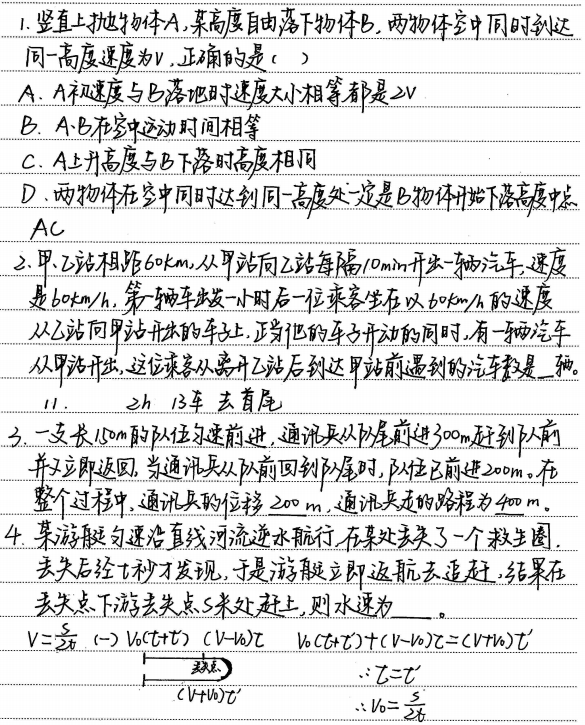 1. 竖直上抛物体A,某高度自由落下物体B,两物体空中同时到达
同一高度速度为V,正确的是( )
A. A初速度与B落地时速度大小相等都是2V
B. A.B在空中运动时间相等
C. A上升高度与B下落时高度相同
D. 两物体在空中同时达到同一高度处一定是B物体开始下落高度中点
AC
2. 甲.乙站相距60km,从甲站向乙站每隔10min开出一辆汽车,速度
是60km/h,第一辆车出发一小时后一位乘客坐在以60km/h的速度
从乙站向甲站开出的车子上,正当他的车子开动的同时,有一辆汽车
从甲站开出,这位乘客从离开乙站后到达甲站前遇到的汽车数是__辆。
11. 2h 13车 去首尾
3. 一支长150m的队伍匀速前进,通讯兵从队尾前进300m赶到队前
并又立即返回,当通讯兵从队前回到队尾时,队伍已前进200m。在
整个过程中,通讯兵的位移 200 m,通讯兵走的路程为 400 m。
4. 某游艇匀速沿直线河流逆水航行,在某处丢失了一个救生圈,
丢失后经t秒才发现,于是游艇立即返航去追赶,结果在
丢失点下游丢失点S米处赶上,则水速为____。
V=S/2t (一) V₀(t+t′) (V-V₀)t V₀(t+t′)+(V-V₀)t=(V+V₀)t′
丢失点 ∴t=t′
(V+V₀)t′ ∴V₀=S/2t